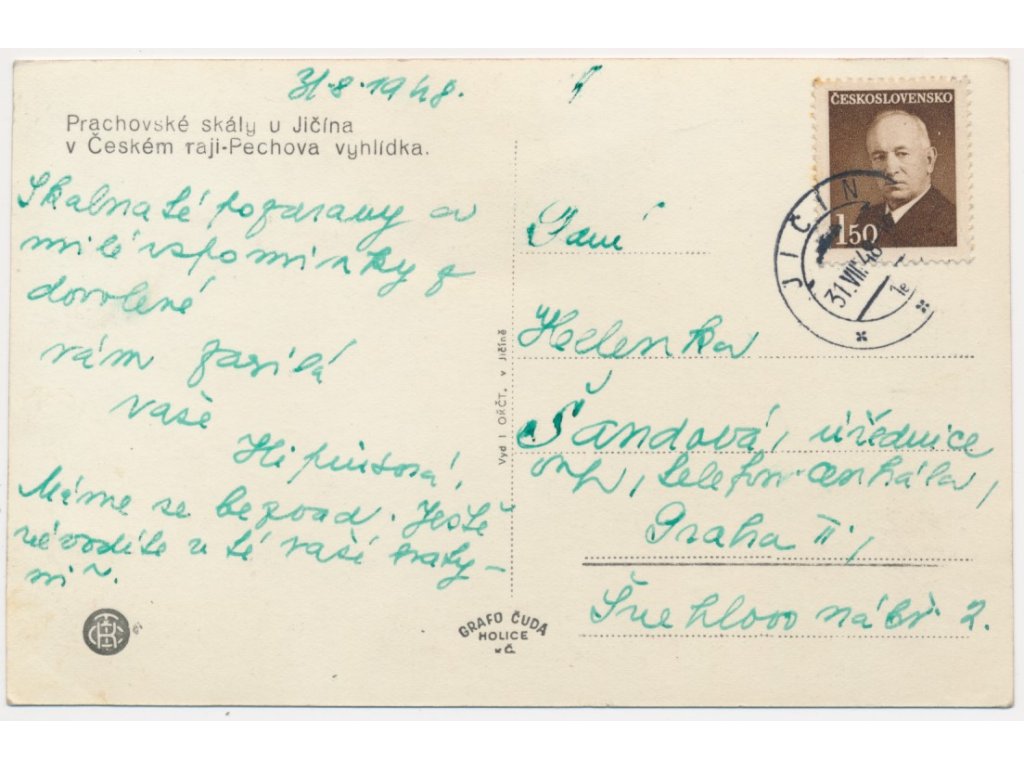 31.8.1948.
Prachovské skály u Jičína
v Českém raji-Pechova vyhlídka.
Skalnaté pozdravy a
milé vzpomínky z
dovolené
vám zasílá
vaše
Máme se bezvad. Ještě
té vaší
ČESKOSLOVENSKO
1 50
JIČÍN
31.VIII.48
1e
Paní
Helenka
Šandová, úřednice
telefon. centrála,
Praha II,
Švehlovo nábř. 2.
Vyd I OŘČT. v Jičíně
GRAFO ČUDA
HOLICE
v Č.